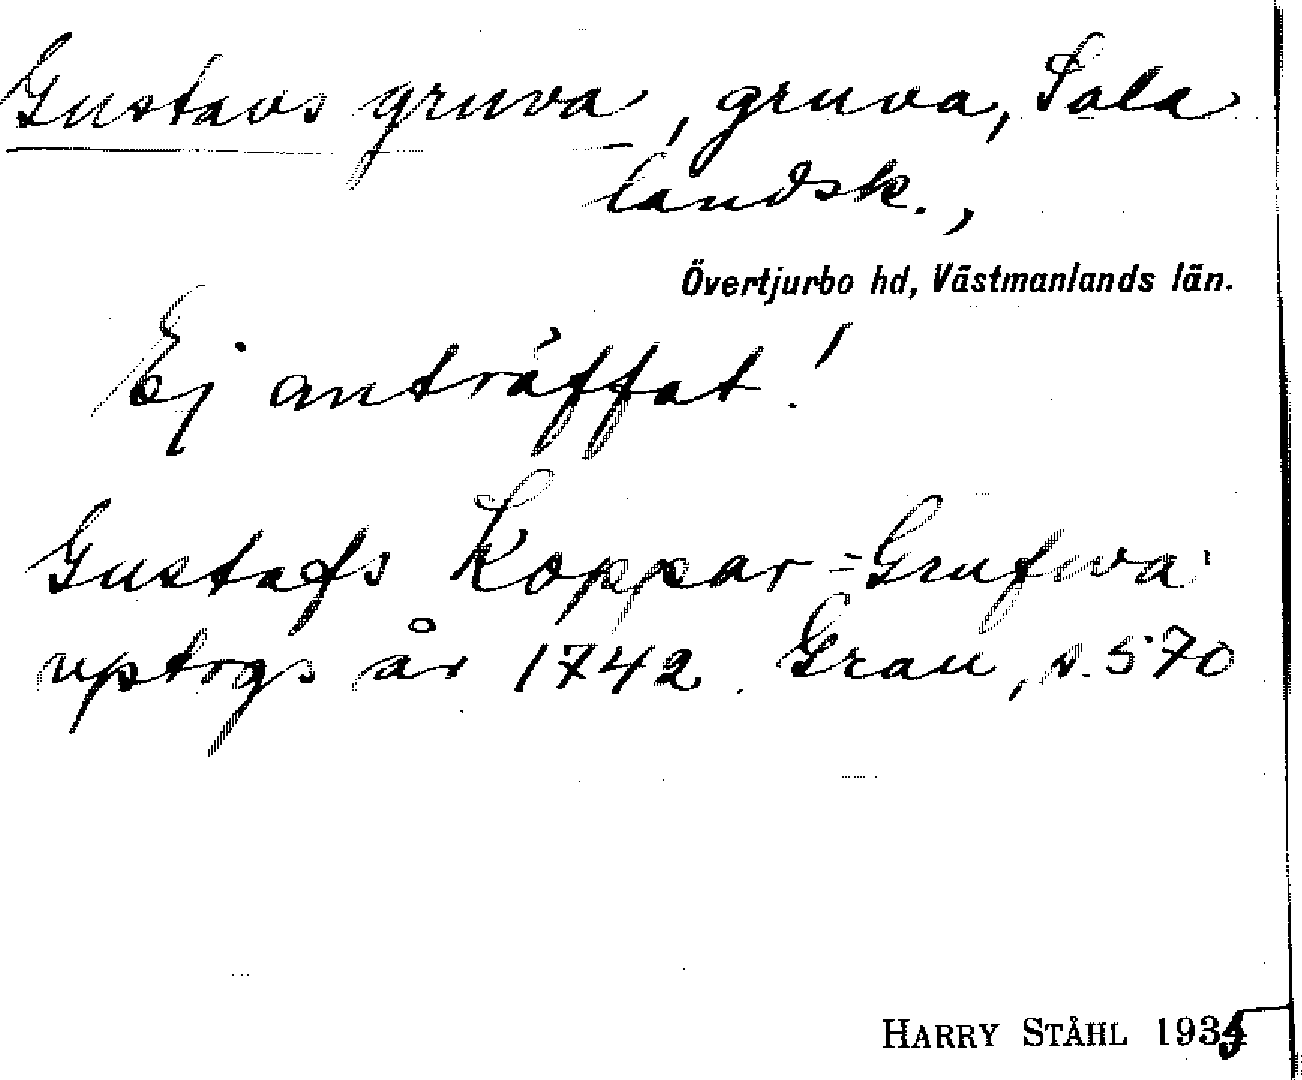 Gustavs gruva, gruva, Sala
landsk.,
Övertjurbo hd, Västmanlands län.
Ej anträffat!
Gustafs Koppar=Grufwa
uptogs år 1742. Grau, s. 570
HARRY STÅHL 1935